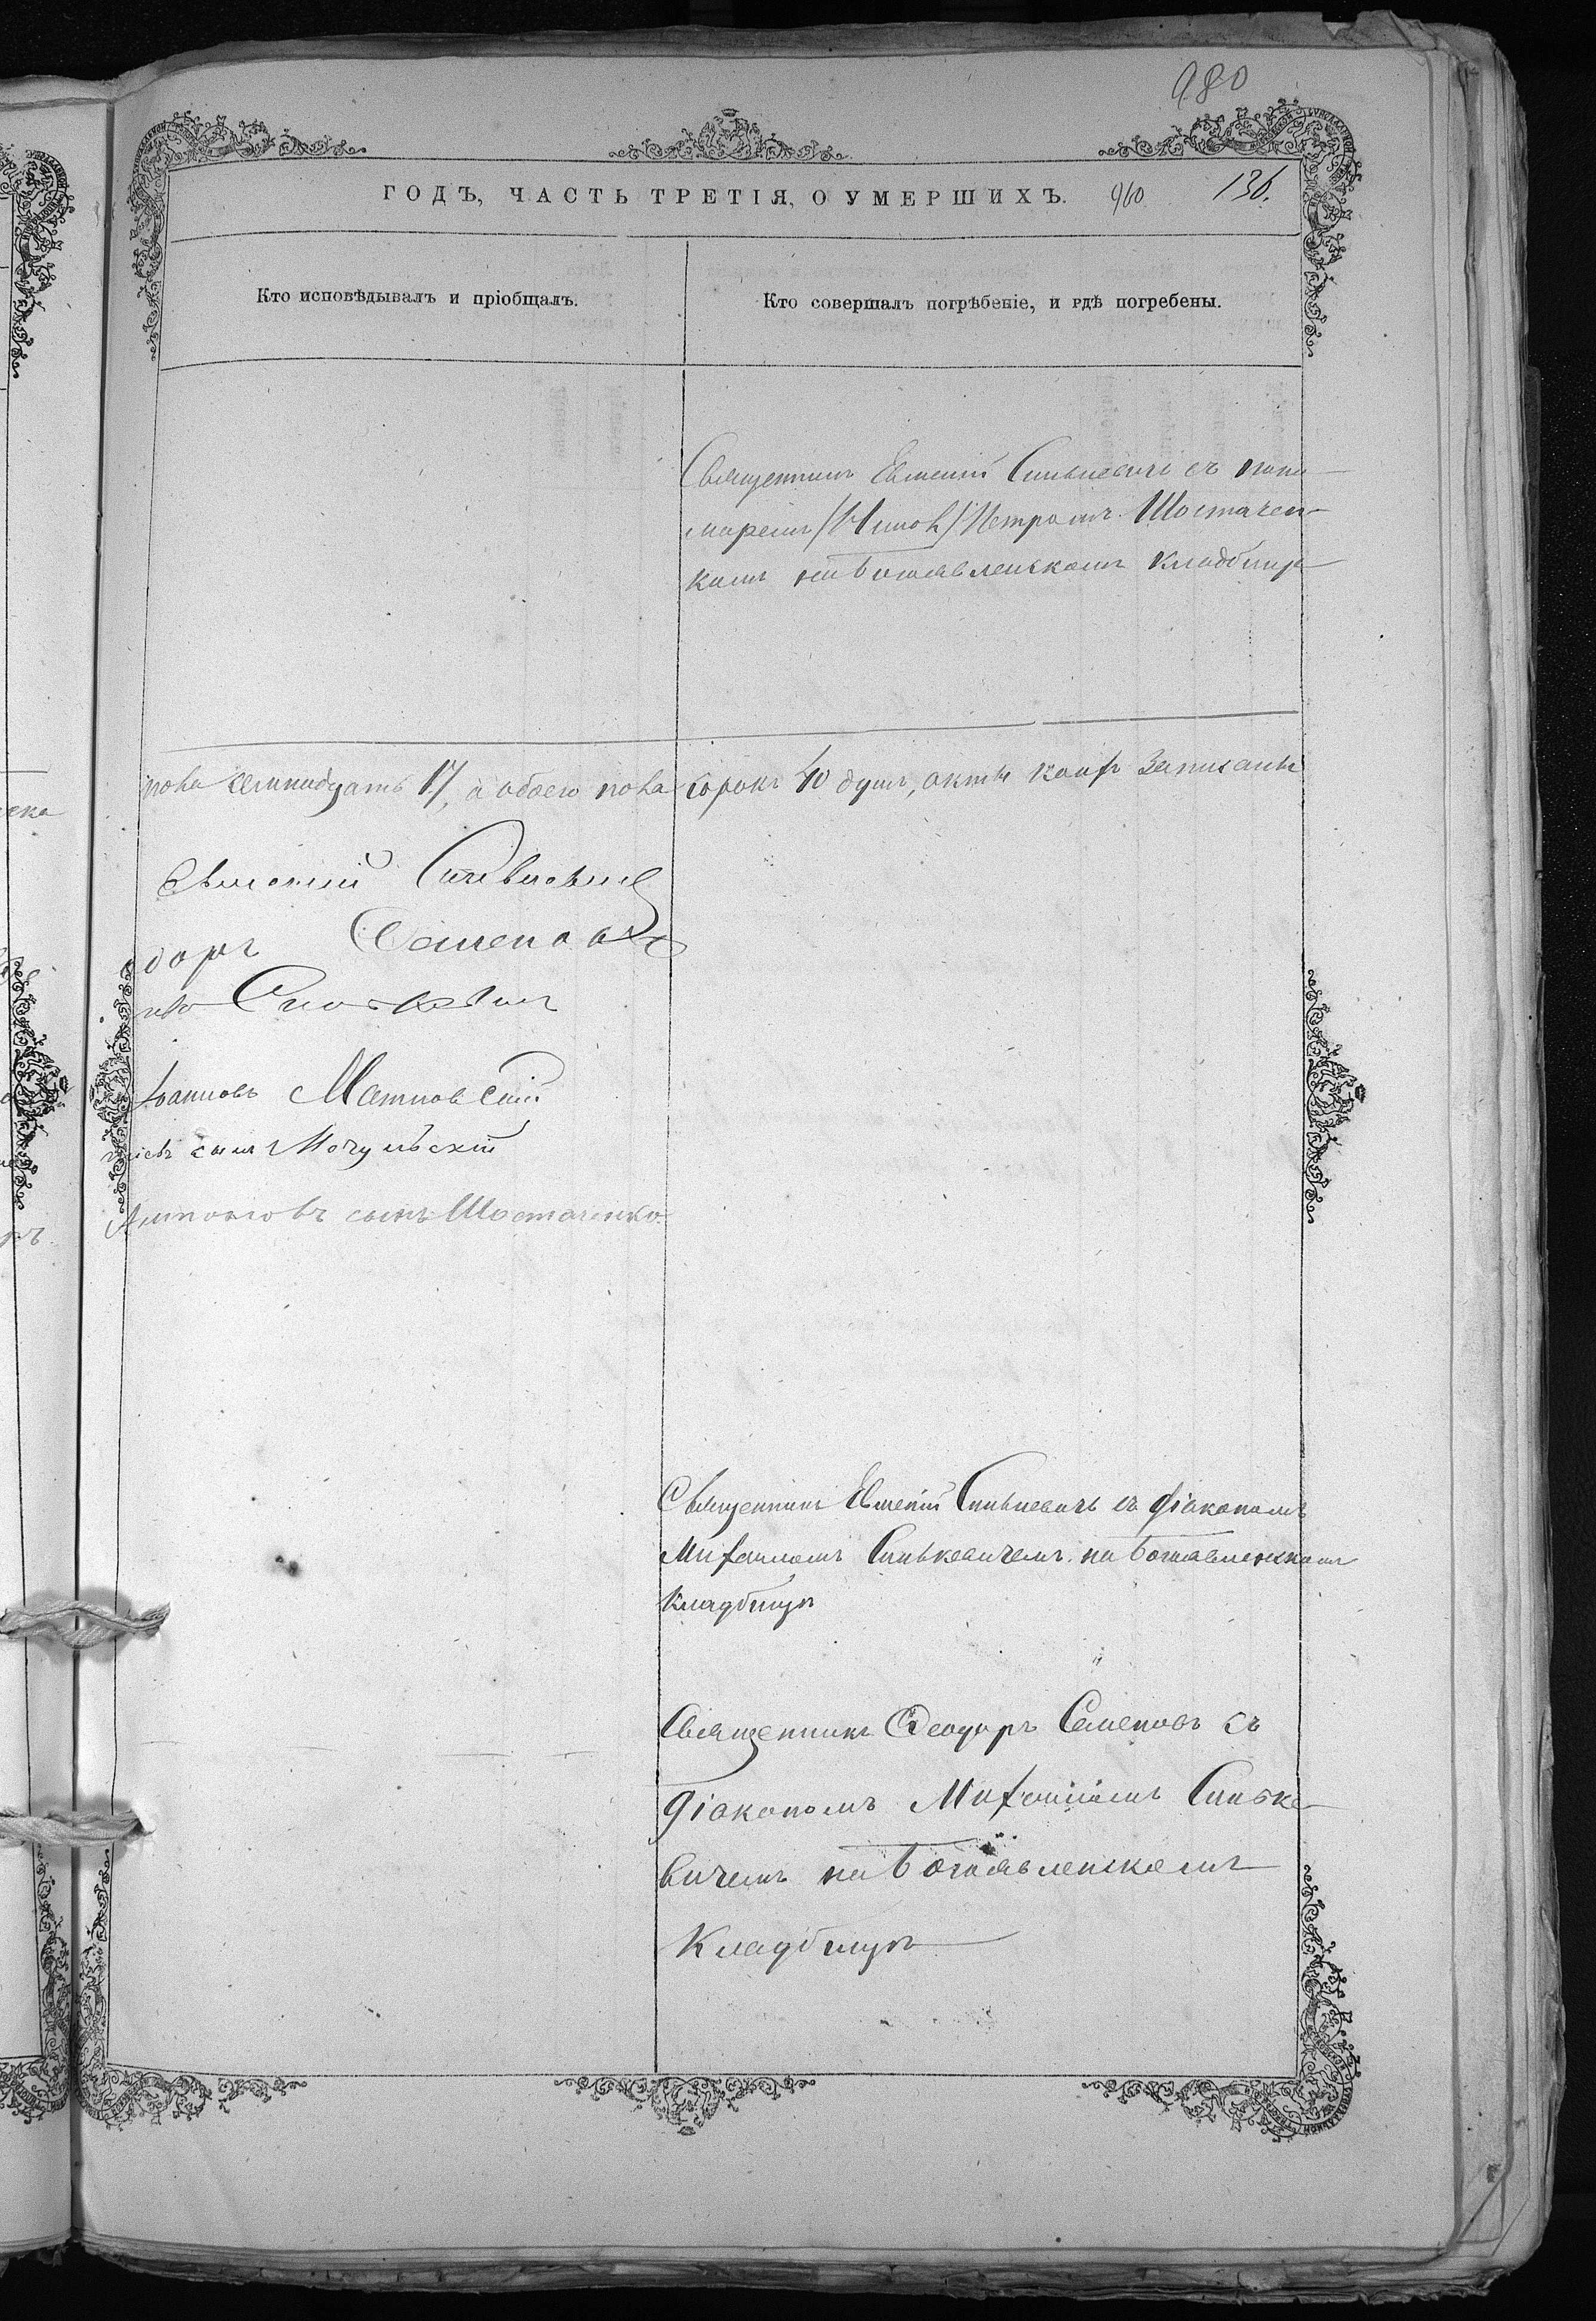 980
ГОДЪ, ЧАСТЬ ТРЕТІЯ, О УМЕРШИХЪ. 960 136.
Кто исповѣдывалъ и пріобщалъ.
Кто совершалъ погрѣбеніе, и гдѣ погребены.
Священникъ Евмений Синькевичъ съ поно-
марем Петромъ Шостачен-
комъ на Богоявленскомъ кладбищѣ
пола семнадцать 17, а обоего пола сорокъ 40 душъ, акты коихъ записаны
Евмений Синькевичъ
доръ Семеновъ
Синькевичъ
Іоанновъ
сынъ Мочульскій
Антоновъ сынъ Шостаченко.
Священникъ Евменій Синькевичъ съ діакономъ
Михаиломъ Синькевичемъ на Богоявленскомъ
кладбищѣ
Священникъ Ѳеодоръ Семеновъ съ
діакономъ Михаиломъ Синьке-
вичемъ на Богоявленскомъ
кладбищѣ